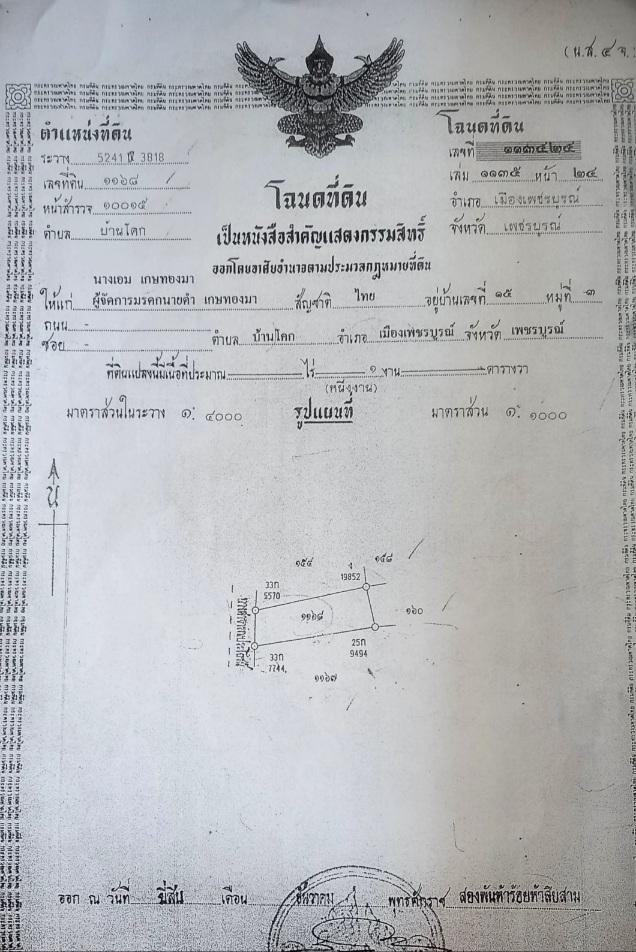 (น.ส. ๔ จ.)
ตำแหน่งที่ดิน
ระวาง 5241 IV 3818
เลขที่ดิน ๑๑๖๘
หน้าสำรวจ ๑๐๐๑๕
ตำบล บ้านโคก
โฉนดที่ดิน
เลขที่ ๑๑๓๔๒๔
เล่ม ๑๑๓๕ หน้า ๒๔
อำเภอ เมืองเพชรบูรณ์
จังหวัด เพชรบูรณ์
โฉนดที่ดิน
เป็นหนังสือสำคัญแสดงกรรมสิทธิ์
ออกโดยอาศัยอำนาจตามประมวลกฎหมายที่ดิน
นางเอม เกษทองมา
ให้แก่ ผู้จัดการมรดกนายดำ เกษทองมา สัญชาติ ไทย อยู่บ้านเลขที่ ๑๕ หมู่ที่ ๓
ถนน -
ซอย - ตำบล บ้านโคก อำเภอ เมืองเพชรบูรณ์ จังหวัด เพชรบูรณ์
ที่ดินแปลงนี้มีเนื้อที่ประมาณ ไร่ ๑ งาน ตารางวา
(หนึ่งงาน)
มาตราส่วนในระวาง ๑: ๔๐๐๐ รูปแผนที่ มาตราส่วน ๑: ๑๐๐๐
น
๑๕๔ ง ๑๔๘
33ก 19852
5570
๑๑๖๘ ๑๖๐
25ก
33ก 9494
7744
๑๑๖๗
ทางสาธารณประโยชน์
ออก ณ วันที่ ยี่สิบ เดือน ธันวาคม พุทธศักราช สองพันห้าร้อยห้าสิบสาม